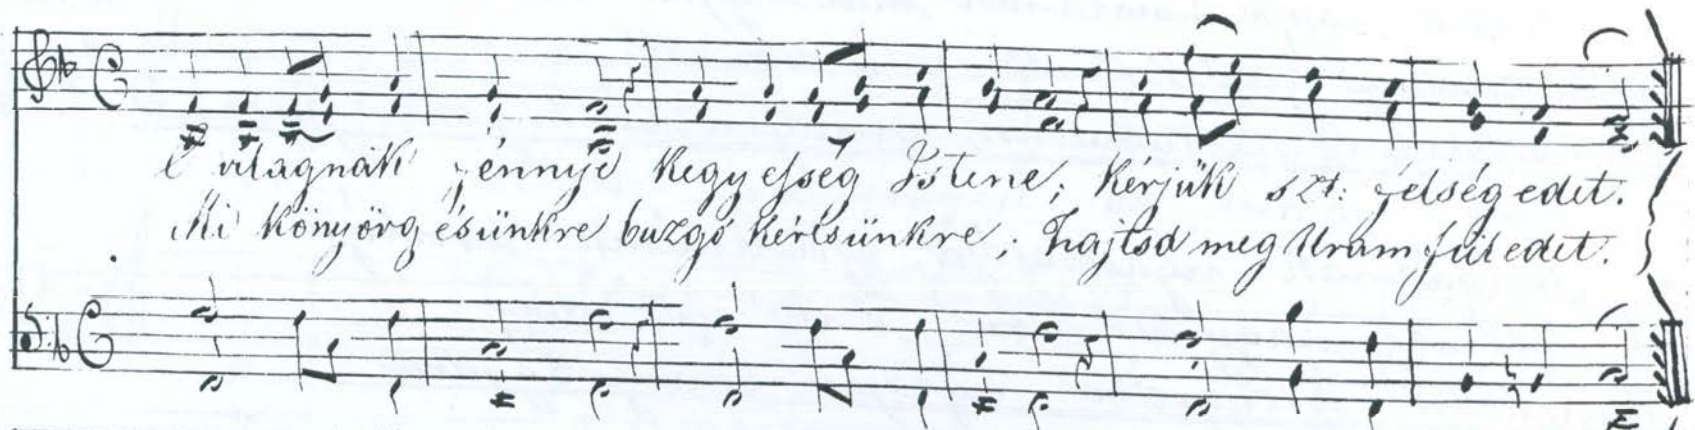 E világnak fénnyе kegyesség Istene; kérjük szt: felségedet.
Mi könyörgésünkre buzgó kérésünkre; hajtsd meg Uram füledet.